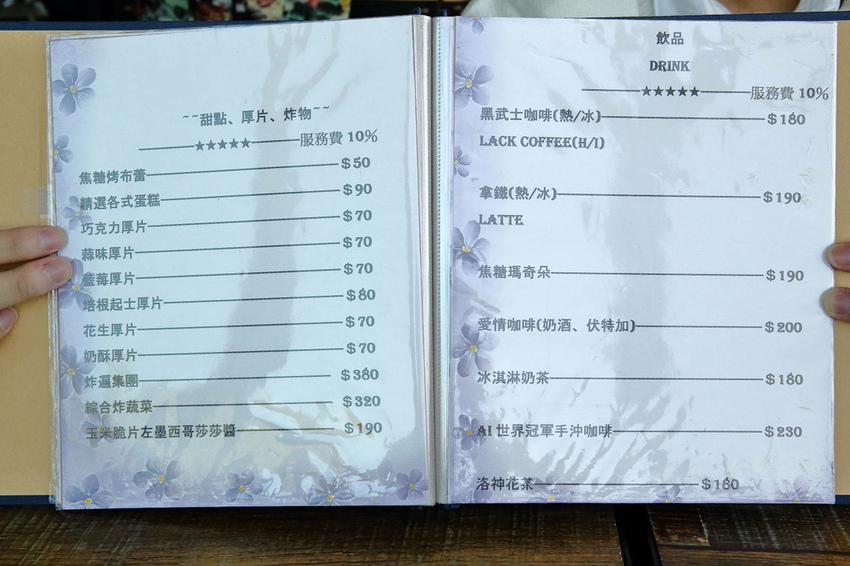 ~~甜點、厚片、炸物~~
★★★★★ 服務費 10%
焦糖烤布蕾 $50
精選各式蛋糕 $90
巧克力厚片 $70
蒜味厚片 $70
藍莓厚片 $70
培根起士厚片 $80
花生厚片 $70
奶酥厚片 $70
炸遍集團 $380
綜合炸蔬菜 $320
玉米脆片左墨西哥莎莎醬 $190
飲品
DRINK
★★★★★ 服務費 10%
黑武士咖啡(熱/冰) $180
LACK COFFEE(H/I)
拿鐵(熱/冰) $190
LATTE
焦糖瑪奇朵 $190
愛情咖啡(奶酒、伏特加) $200
冰淇淋奶茶 $180
AI 世界冠軍手沖咖啡 $230
洛神花茶 $180